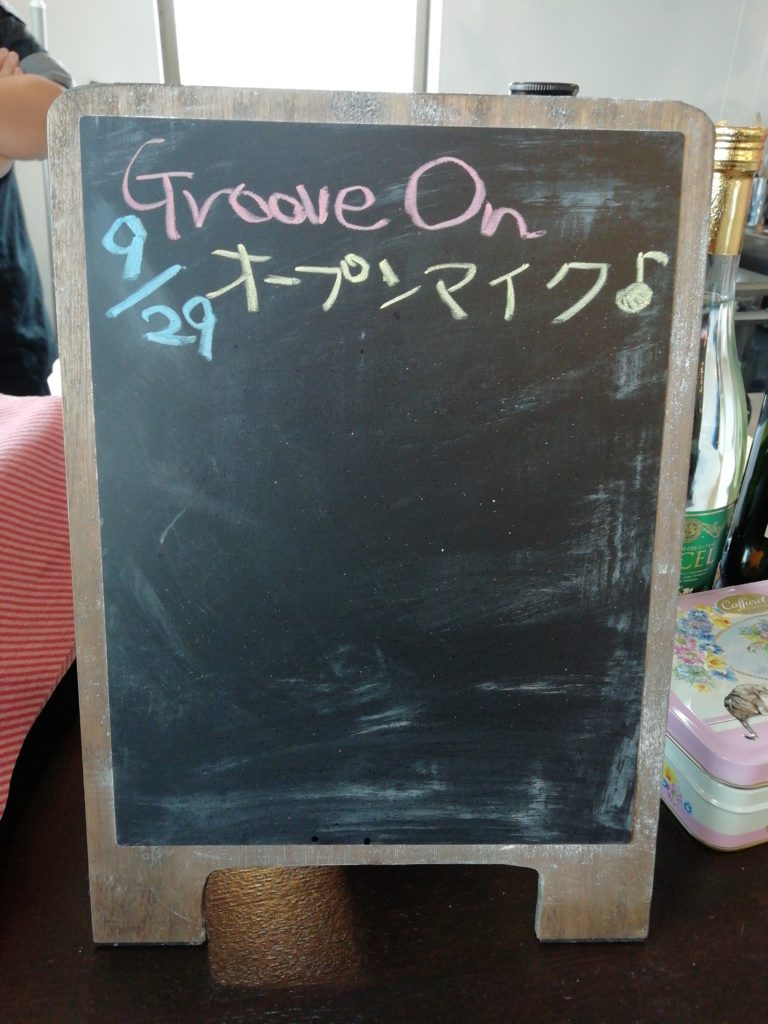 Groove On
9/29 オープンマイク♪
CEL
Caffarel